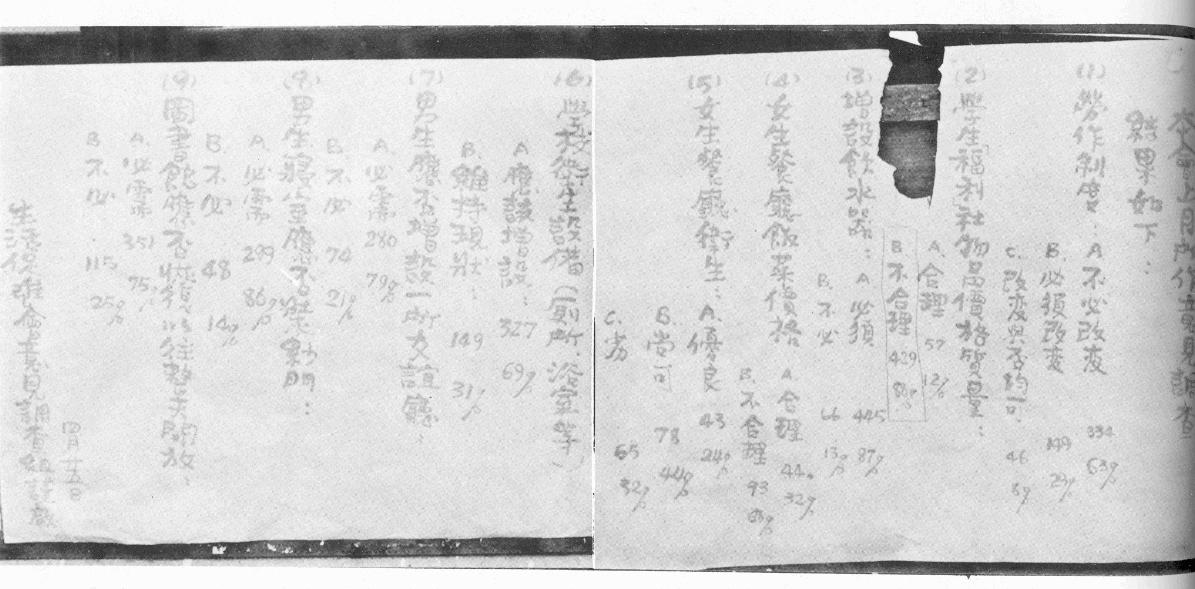 本會上月所作意見調查
結果如下：
(1) 勞作制度：A 不必改变 334 63%
B. 必須改变 149 29%
C. 改变與否均可 46 8%
(2) 學生福利社物品價格質量：
A. 合理 57 12%
B 不合理 429 88%
(3) 增設飲水器：A 必須 445 87%
B. 不必 66 13%
(4) 女生餐廳飯菜價格 A 合理 44 32%
B. 不合理 93
(5) 女生餐廳衛生：A. 優良 43 24%
B. 尚可 78 44%
C. 劣 65 32%
(6) 學校衛生設備（廁所、浴室等）
A 應該增設：327 69%
B. 維持現狀：149 31%
(7) 男生應否增設一所友誼廳：
A. 必需 280 79%
B. 不必 74 21%
(8) 男生寢室應否
A. 必需 299 86%
B. 不必 48 14%
(9) 圖書館應否恢復以往整天開放：
A. 必需 351 75%
B 不必 115 25%
生活促進會意見調查組
四月廿五日